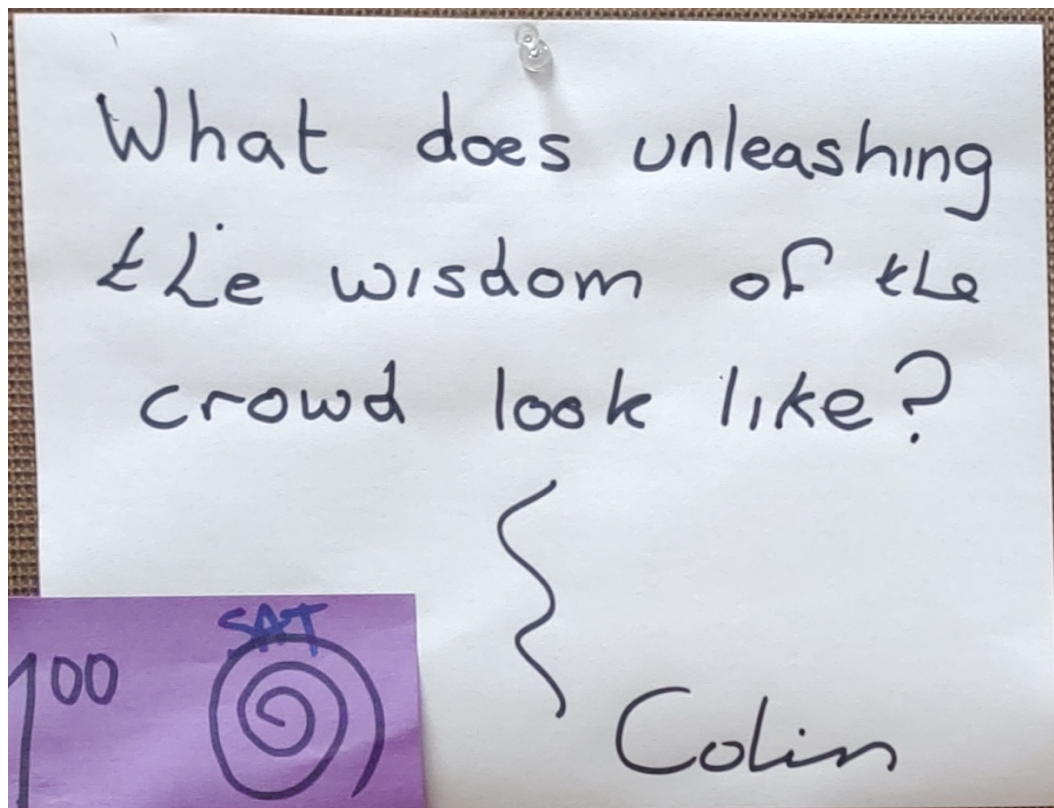 What does unleashing
the wisdom of the
crowd look like?
SAT
1 00
Colin